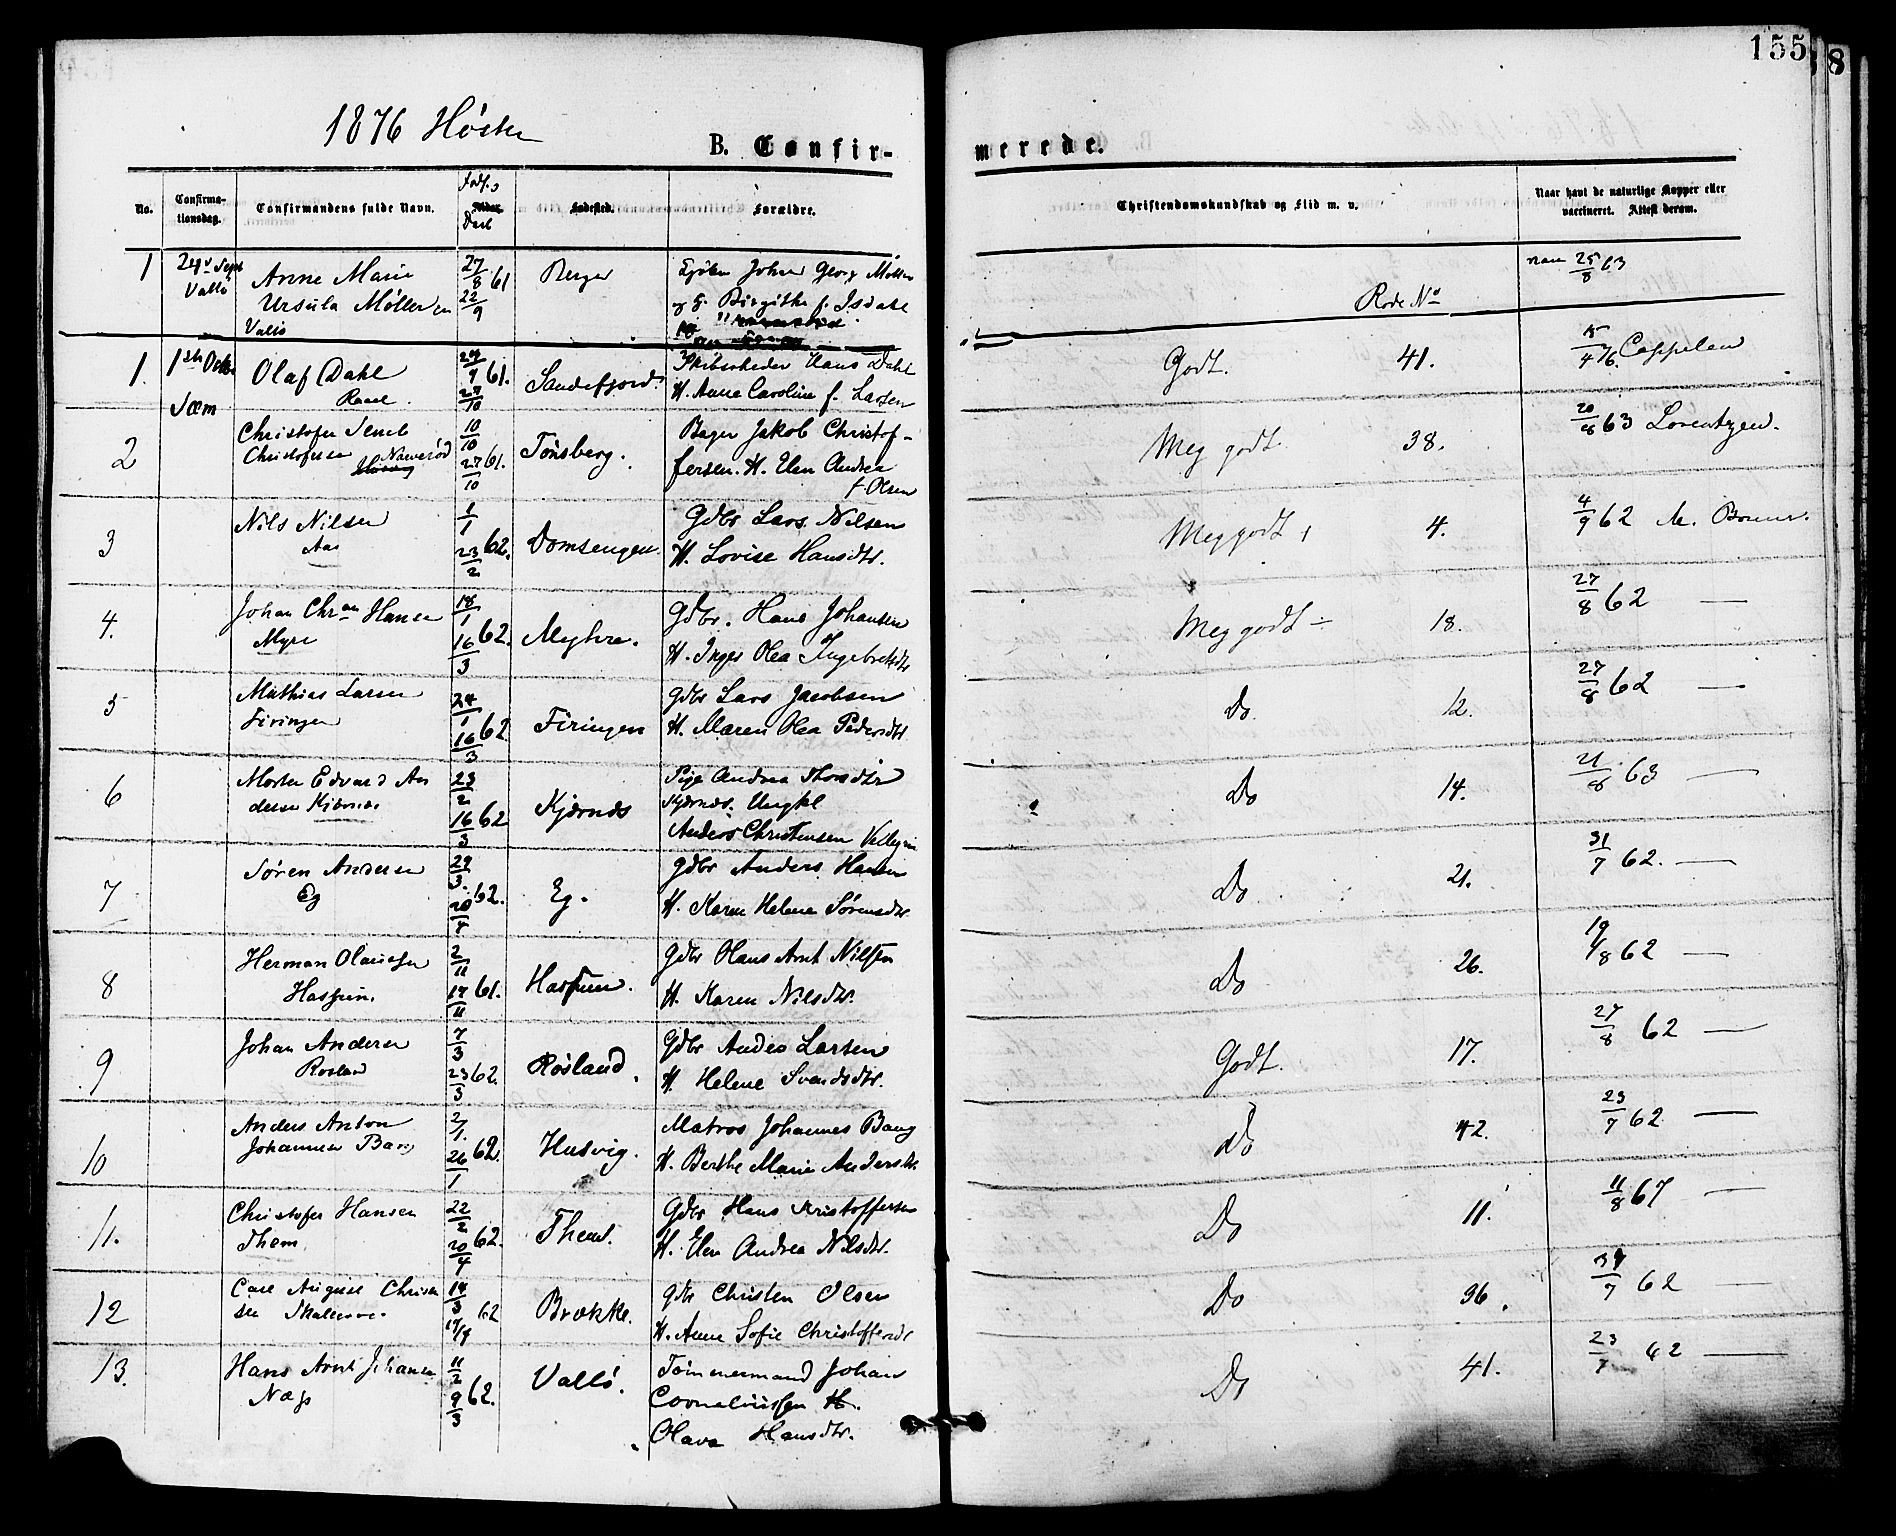 155
8
1876 Høsten
B. Confir-
merede.
No.
Confirma-
tionsdag.
Confirmandens fulde Navn.
Fødsels
Alder.
Daab
Fødested.
Forældre.
Christendomskundskab og Flid m. v.
Naar havt de naturlige Kopper eller
vaccineret. Attest derom.
Rode No
1
Vallø
Anne Marie
Ursula Møller
Vallø
27/8 61
22/9
Berger
Johan Georg Møller
Birgithe f. Isdahl
25/8 63
1.
1ste Octbr
Sæm
Olaf Dahl
24/9 61.
27/10
Sandefjord.
Skibsrheder Hans Dahl
H. Anne Caroline f. Larsen
Godt.
41.
15/4 76. Cappelen
2
Christofer
Christofersen Nauverød
10/10
27/10 61.
Tønsberg.
Bager Jakob Christof-
fersen. H. Elen Andrea
f. Olsen
Meg godt
38.
20/8 63 Lorentzen.
3
Nils Nilsen
Aas
1/1
23/2 62.
Domsengen.
Gdbr Lars Nilsen
H. Lovise Hansdtr.
Meg godt
4.
4/9 62
4.
Johan Chran Hansen
Myre
18/1
16/3 62.
Myhre.
Gdbr. Hans Johansen
H. Inger Olea Ingebretsdtr
Meg godt ÷
18.
27/8 62 —
5
Mathias Larsen
Firingen
24/1
16/3 62
Firingen
Gdbr Lars Jacobsen
H. Maren Olea Pedersdtr
Do.
12.
27/8 62 —
6
Morten Edvard An
dersen Kjærnæs
23/2
16/3 62
Kjærnæs
Pige Andrea Thorsdtr
Kjærnæs. Ungkl
Anders Christensen
Do
14.
21/8 63 —
7
Søren Andersen
Eg
29/3.
20/4 62.
Eg.
Gdbr Anders Hansen
H. Karen Helene Sørensdtr.
Do
21.
31/7 62. —
8
Herman Olausen
Haspun.
2/11
17/11 61.
Haspun.
Gdbr Olaus Arnt Nilsen
H. Karen Nilsdtr.
Do
26.
19/8 62 —
9
Johan Andersen
Rosland
7/3
23/3 62.
Røsland.
Gdbr Andes Larsen
H. Helene Svendsdtr.
Godt.
17.
27/8 62 —
10
Anders Anton
Johannesen Bang
2/1.
26/1 62.
Husvig.
Matros Johannes Bang
H. Berthe Marie Andersdtr.
Do
42.
23/7 62. —
11.
Christofer Hansen
Them
22/2
20/4 62.
Them.
Gdbr Hans Kristoffersen
H. Elen Andrea Nilsdtr.
Do
11.
11/8 67 —
12
Carl August Christen
sen
14/3
17/4 62
Brække.
Gdbr Christen Olsen
H. Anne Sofie Christoffersdtr
Do
36.
62 —
13.
Hans Arnt Johansen
Næs
11/2
9/3 62.
Vallø.
Tømmermand Johan
Corneliussen H.
Olava Hansdtr.
Do
41.
23/7 62 —